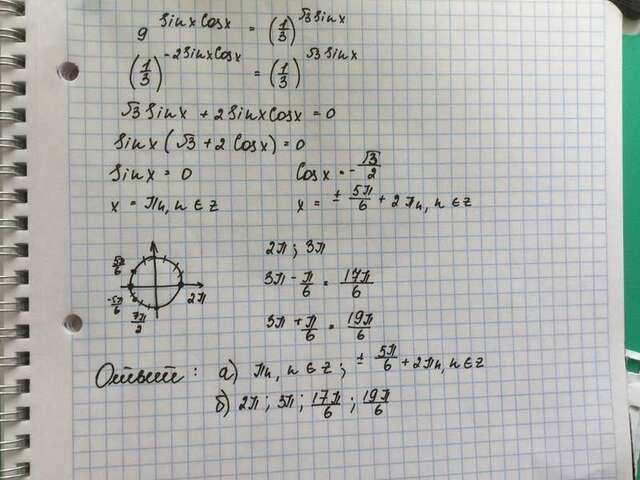 9^(sinx cosx) = (1/3)^(√3 sinx)
(1/3)^(-2sinx cosx) = (1/3)^(√3 sinx)
√3 sinx + 2sinx cosx = 0
sinx(√3 + 2cosx) = 0
sinx = 0 cosx = -√3/2
x = πn, n ∈ z x = ± 5π/6 + 2πn, n ∈ z
2π; 3π
3π - π/6 = 17π/6
3π + π/6 = 19π/6
5π/6
-5π/6
2π
7π/2
Ответ: а) πn, n ∈ z; ± 5π/6 + 2πn, n ∈ z
б) 2π; 3π; 17π/6; 19π/6